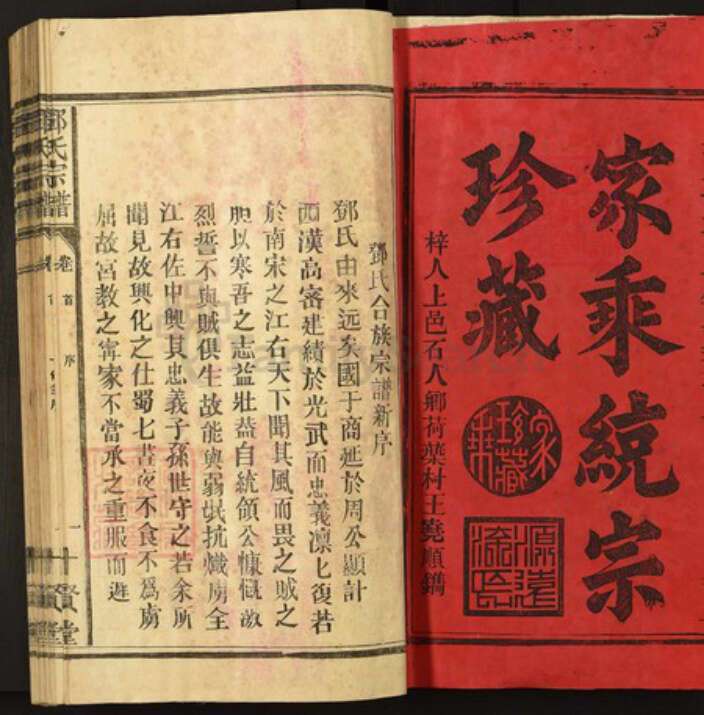 家乘統宗
珍藏
梓人上邑石人鄉荷葉村王堯順鐫
家乘珍藏
源遠流長
鄧氏合族宗譜新序
鄧氏由來远矣國于商延於周公顯計
西漢高審建績於光武而忠義凛匕復若
於南宋之江右天下聞其風而畏之賊之
胆以寒吾之志益壯葢自統領公慷慨敵
烈誓不與賊俱生故能與弱氓抗熾虜全
江右佐中興其忠義子孫世守之若余所
聞見故興化之仕蜀匕晝夜不食不爲虜
屈故宮教之寗家不當承之重服而避
鄧氏宗譜
卷首
序
一
賢堂